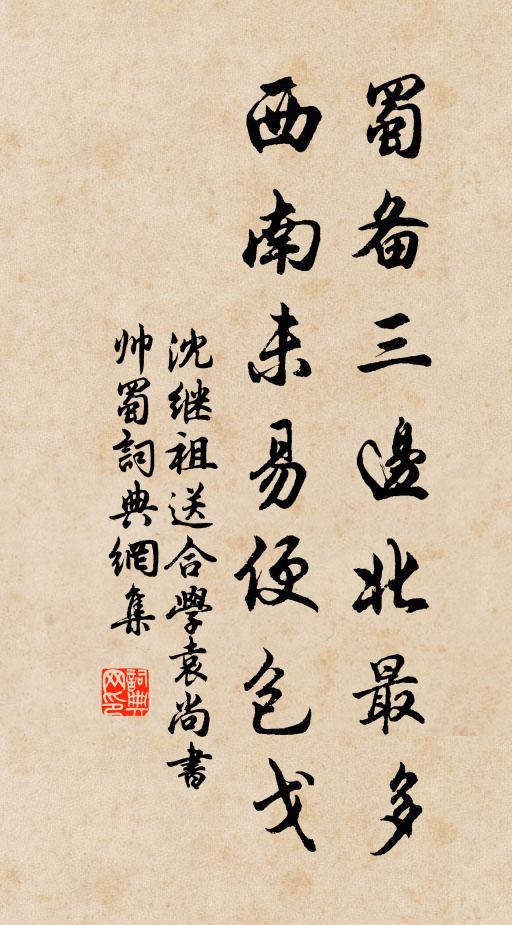 蜀备三邊北最多
西南未易便包戈
沈继祖送合學袁尚書
帅蜀詞典網集
詞典
网印